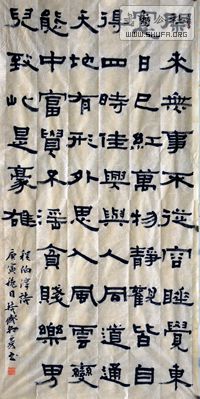 來無事不從容睡覺東
窗日已紅萬物靜觀皆自
得四時佳興與人同道通
天地有形外思入風雲變
態中富貴不淫貧賤樂男
兒到此是豪雄
程伯淳詩
庚寅
WWW.SHUFA.ORG